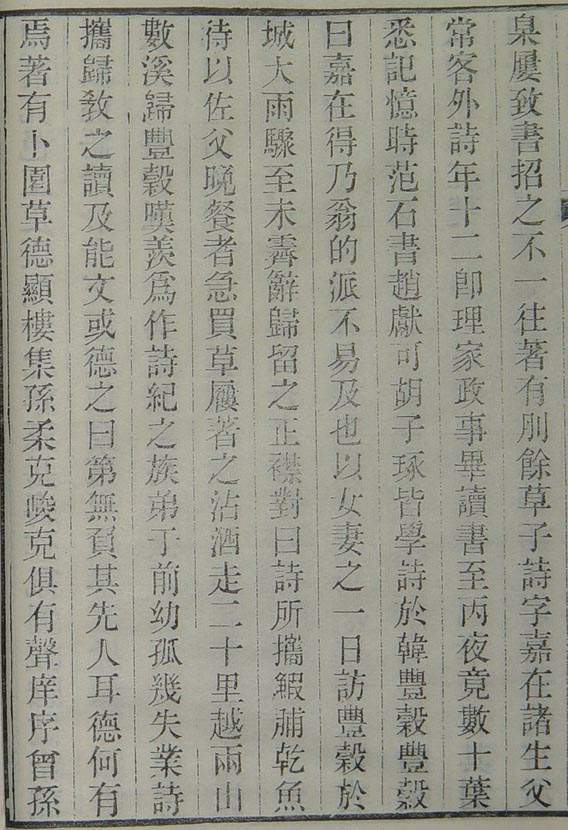 臬屢致書招之不一往著有刖餘草子詩字嘉在諸生父
常客外詩年十二卽理家政事畢讀書至丙夜竟數十葉
悉記憶時范石書趙獻可胡子琢皆學詩於韓豐穀豐穀
曰嘉在得乃翁的派不易及也以女妻之一日訪豐穀於
城大雨驟至未霽辭歸留之正襟對曰詩所攜鰕脯乾魚
待以佐父晚餐者急買草屨著之沾酒走二十里越兩山
數溪歸豐穀嘆羨爲作詩紀之族弟于前幼孤幾失業詩
攜歸敎之讀及能文或德之曰第無負其先人耳德何有
焉著有卜圃草德顯樓集孫柔克峻克俱有聲庠序曾孫